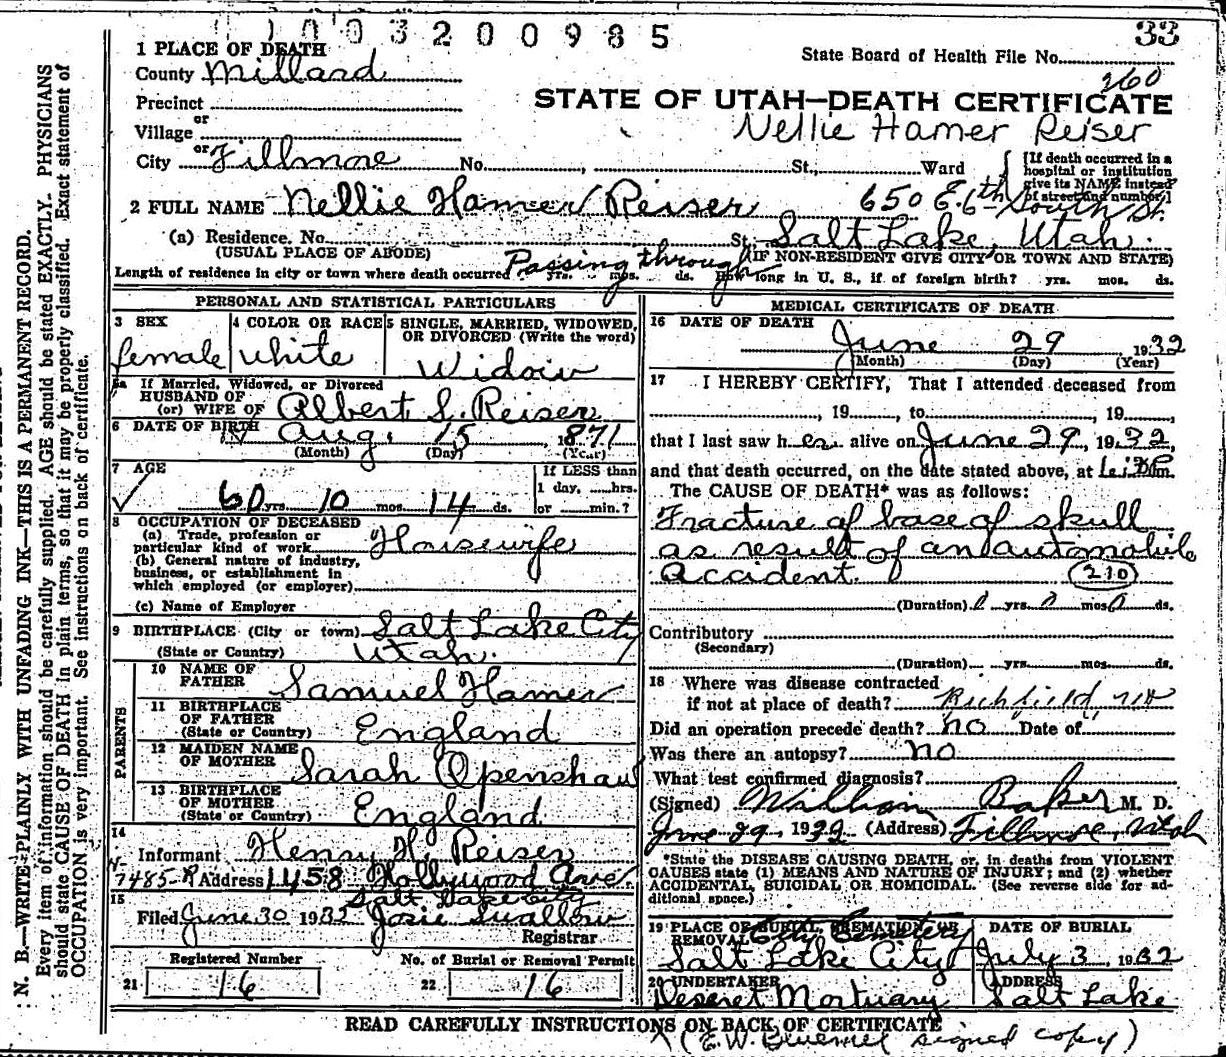 1003200985
33
1 PLACE OF DEATH
State Board of Health File No.
County Millard
260
Precinct
STATE OF UTAH—DEATH CERTIFICATE
or
Village
Nellie Hamer Reiser
or
City Fillmore No. , St., Ward
(If death occurred in a hospital or institution give its NAME instead of street and number)
2 FULL NAME Nellie Hamer Reiser 650 E. 6th South St.
(a) Residence. No. St. Salt Lake, Utah.
(USUAL PLACE OF ABODE) (IF NON-RESIDENT GIVE CITY OR TOWN AND STATE)
Length of residence in city or town where death occurred Passing through yrs. mos. ds. How long in U. S., if of foreign birth? yrs. mos. ds.
PERSONAL AND STATISTICAL PARTICULARS
3 SEX
female
4 COLOR OR RACE
white
5 SINGLE, MARRIED, WIDOWED,
OR DIVORCED (Write the word)
Widow
5a If Married, Widowed, or Divorced
HUSBAND OF
(or) WIFE OF Albert S. Reiser
6 DATE OF BIRTH Aug. 15, 1871
(Month) (Day) (Year)
7 AGE
60 yrs. 10 mos. 14 ds.
If LESS than
1 day, hrs.
or min.?
8 OCCUPATION OF DECEASED
(a) Trade, profession or
particular kind of work Housewife
(b) General nature of industry,
business, or establishment in
which employed (or employer)
(c) Name of Employer
9 BIRTHPLACE (City or town) Salt Lake City
(State or Country) Utah.
PARENTS
10 NAME OF
FATHER Samuel Hamer
11 BIRTHPLACE
OF FATHER
(State or Country) England
12 MAIDEN NAME
OF MOTHER Sarah Openshaw
13 BIRTHPLACE
OF MOTHER
(State or Country) England
14
Informant Henry H. Reiser
7485-R Address 1458 Hollywood Ave.
Salt Lake City
15
Filed June 30 1932 Josie Swallow
Registrar
Registered Number No. of Burial or Removal Permit
21 16 22 16
MEDICAL CERTIFICATE OF DEATH
16 DATE OF DEATH
June 29 1932
(Month) (Day) (Year)
17 I HEREBY CERTIFY, That I attended deceased from
, 19 , to , 19 ,
that I last saw her alive on June 29, 1932,
and that death occurred, on the date stated above, at m.
The CAUSE OF DEATH* was as follows:
Fracture of base of skull
as result of an automobile
accident. 210
(Duration) 0 yrs. 0 mos. 0 ds.
Contributory
(Secondary)
(Duration) yrs. mos. ds.
18 Where was disease contracted
if not at place of death? Richfield
Did an operation precede death? no Date of
Was there an autopsy? no
What test confirmed diagnosis?
(Signed) William Baker M. D.
June 29, 1932 (Address) Fillmore, Utah
*State the DISEASE CAUSING DEATH, or, in deaths from VIOLENT
CAUSES state (1) MEANS AND NATURE OF INJURY; and (2) whether
ACCIDENTAL, SUICIDAL OR HOMICIDAL. (See reverse side for ad-
ditional space.)
19 PLACE OF BURIAL, CREMATION OR
REMOVAL City Cemetery
Salt Lake City
DATE OF BURIAL
July 3, 1932
20 UNDERTAKER
Deseret Mortuary
ADDRESS
Salt Lake
READ CAREFULLY INSTRUCTIONS ON BACK OF CERTIFICATE
(E.W. signed copy)
N. B.—WRITE PLAINLY WITH UNFADING INK—THIS IS A PERMANENT RECORD.
Every item of information should be carefully supplied. AGE should be stated EXACTLY. PHYSICIANS
should state CAUSE OF DEATH in plain terms, so that it may be properly classified. Exact statement of
OCCUPATION is very important. See instructions on back of certificate.